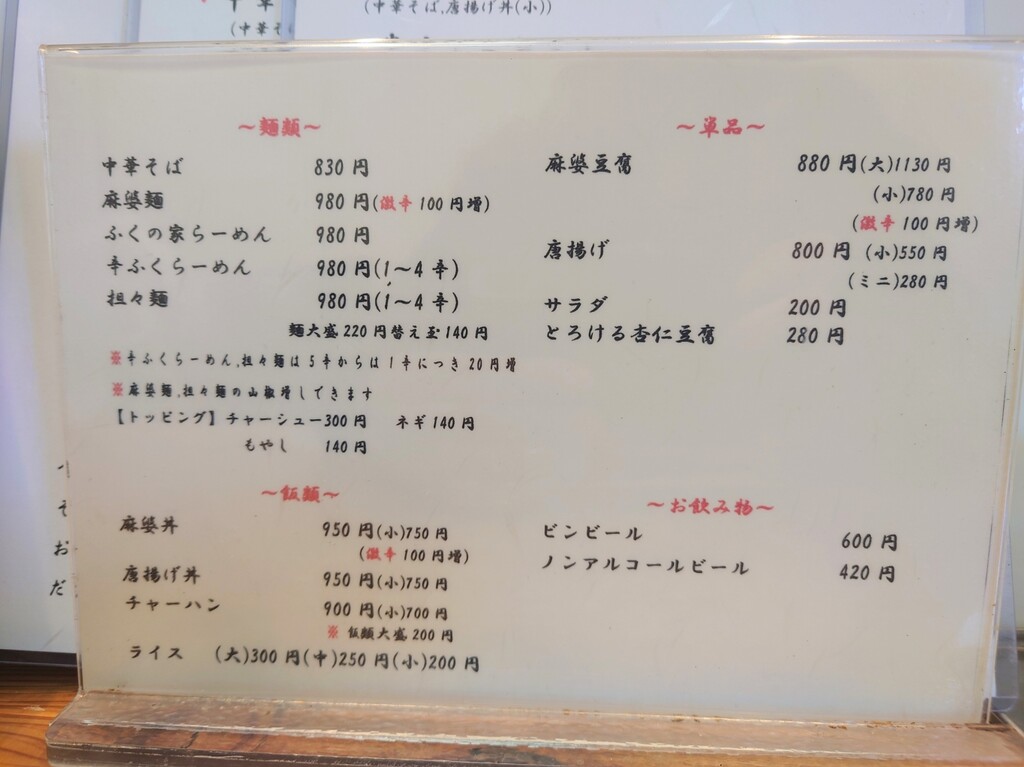 (中華そば,唐揚げ丼(小))
～麺類～
中華そば 830円
麻婆麺 980円(激辛100円増)
ふくの家らーめん 980円
辛ふくらーめん 980円(1～4辛)
担々麺 980円(1～4辛)
麺大盛220円替え玉140円
※辛ふくらーめん,担々麺は5辛からは1辛につき20円増
※麻婆麺,担々麺の山椒増しできます
【トッピング】チャーシュー300円 ネギ140円
もやし 140円
～単品～
麻婆豆腐 880円(大)1130円
(小)780円
(激辛100円増)
唐揚げ 800円 (小)550円
(ミニ)280円
サラダ 200円
とろける杏仁豆腐 280円
～飯類～
麻婆丼 950円(小)750円
(激辛100円増)
唐揚げ丼 950円(小)750円
チャーハン 900円(小)700円
※飯類大盛200円
ライス (大)300円(中)250円(小)200円
～お飲み物～
ビンビール 600円
ノンアルコールビール 420円